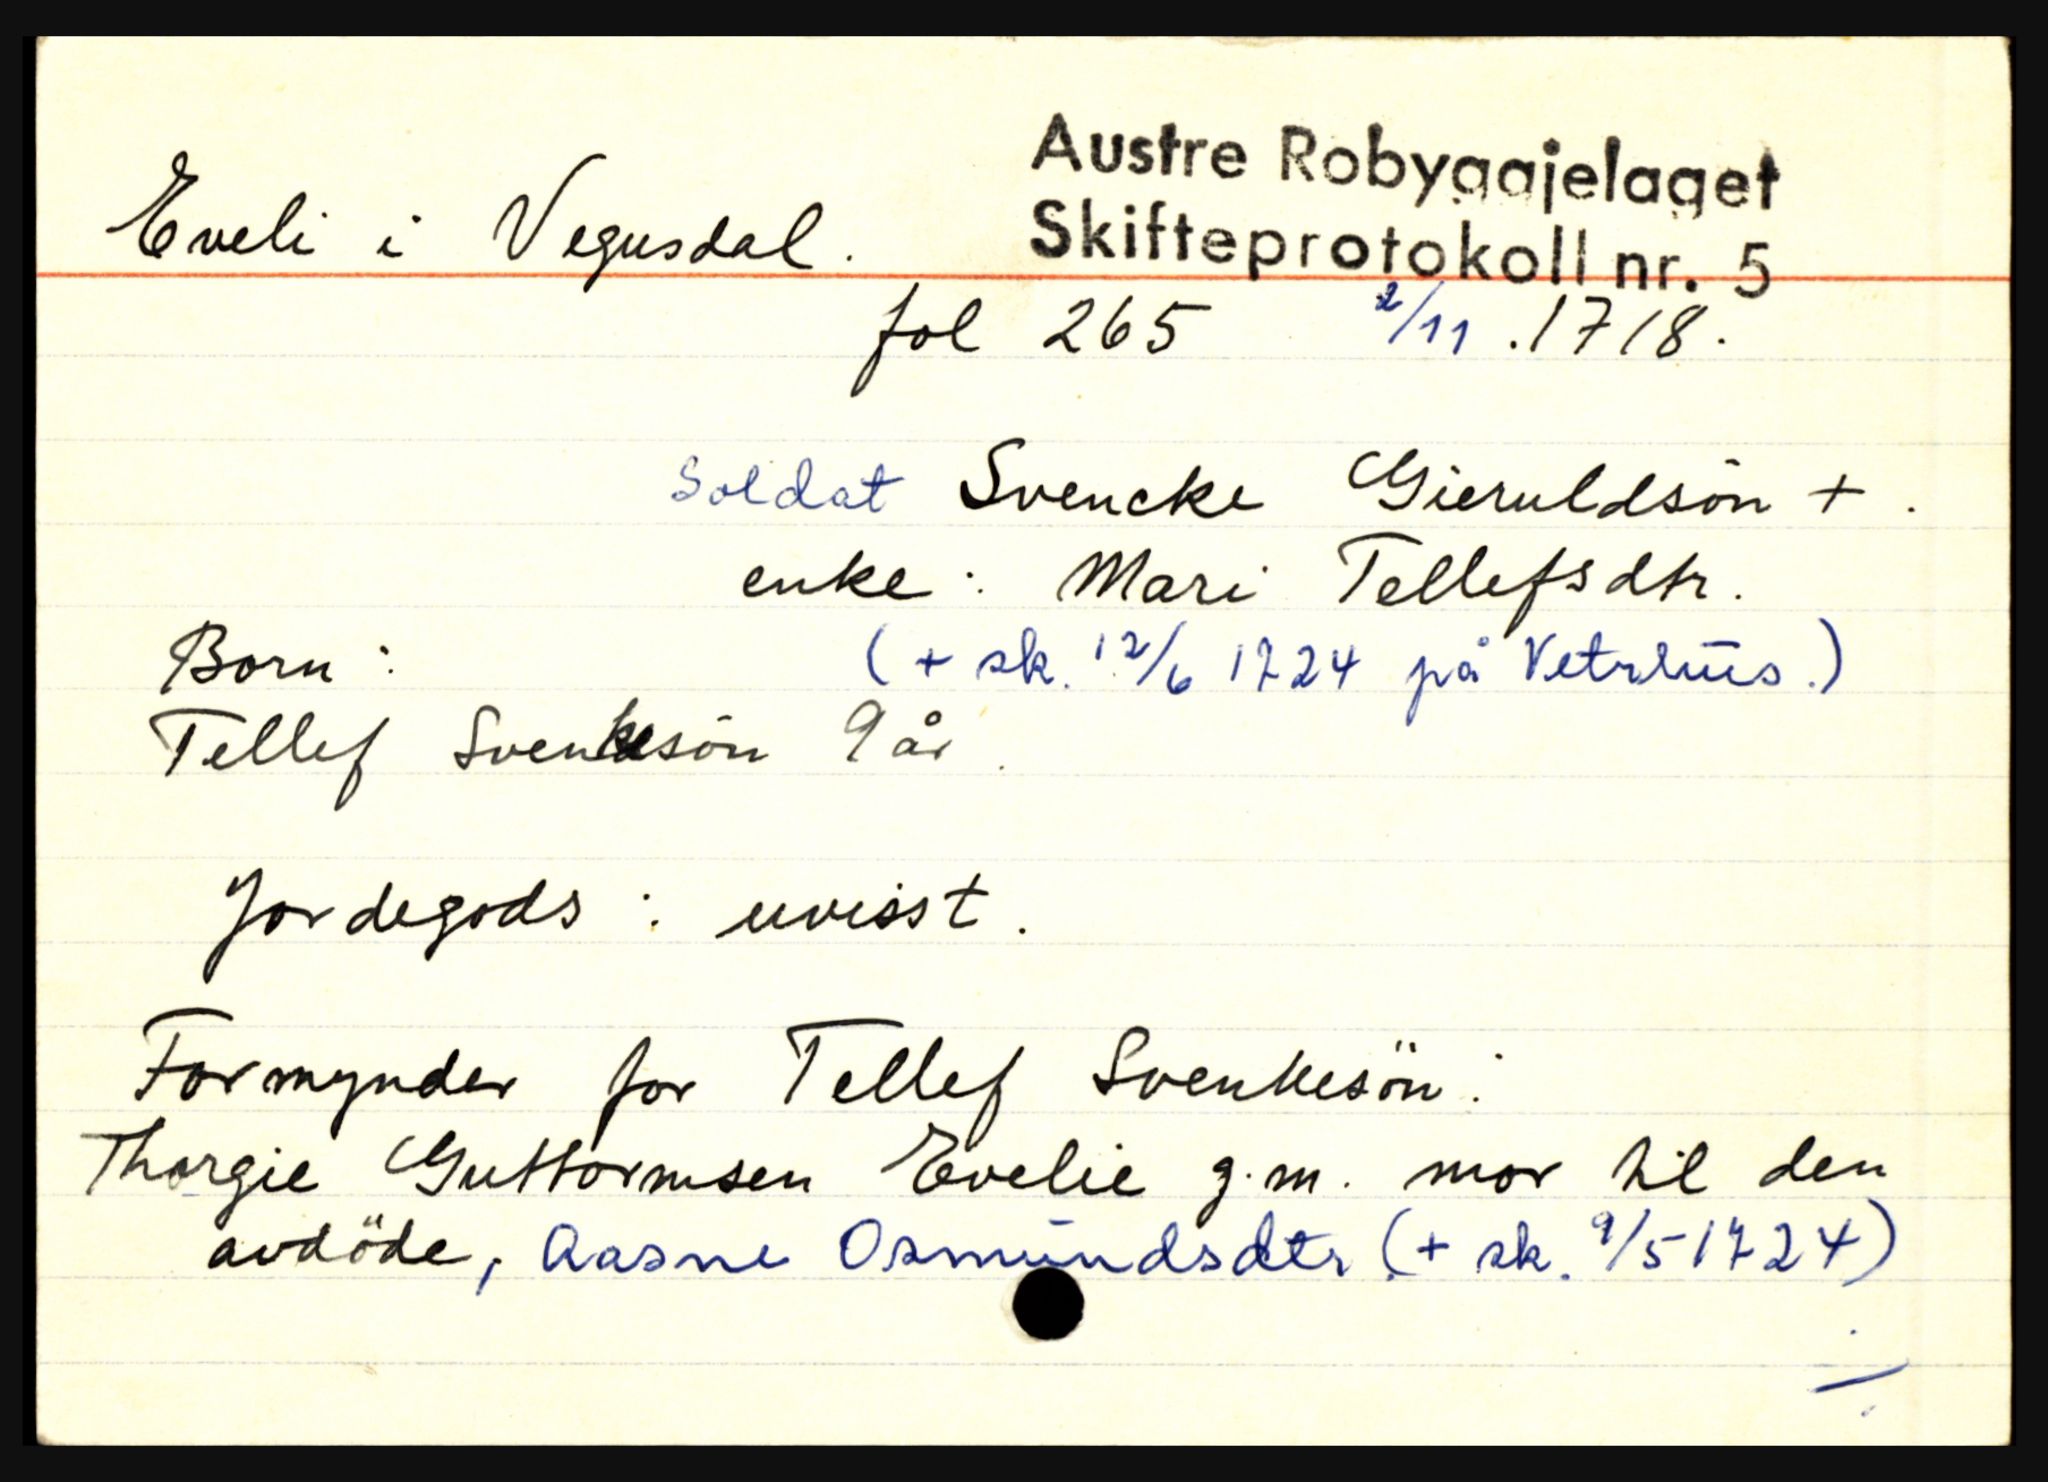 Austre Robyggjelaget
Eveli i Vegusdal.
Skifteprotokoll nr. 5
fol 265 2/11 .1718.
Soldat Svencke Gieruldsön + .
enke : Mari Tellefsdtr.
Born : (+ sk. 12/6 1724 på Vetrhus.)
Tellef Svenkesön 9 år.
Jordegods : uvisst.
Formynder for Tellef Svenkesön :
Thorgie Guttormsen Evelie g.m. mor til den
avdöde, Aasne Osmundsdtr. (+ sk. 9/5 1724)